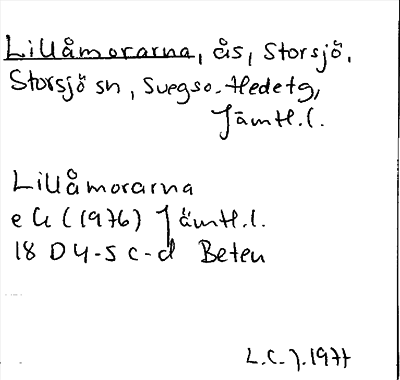 Lillåmorarna, ås, Storsjö,
Storsjö sn, Svegso-Hedetg,
Jämtl.l.
Lillåmorarna
e G (1976) Jämtl.l.
18 D 4-5 c-d Beten
L.C.J. 1977